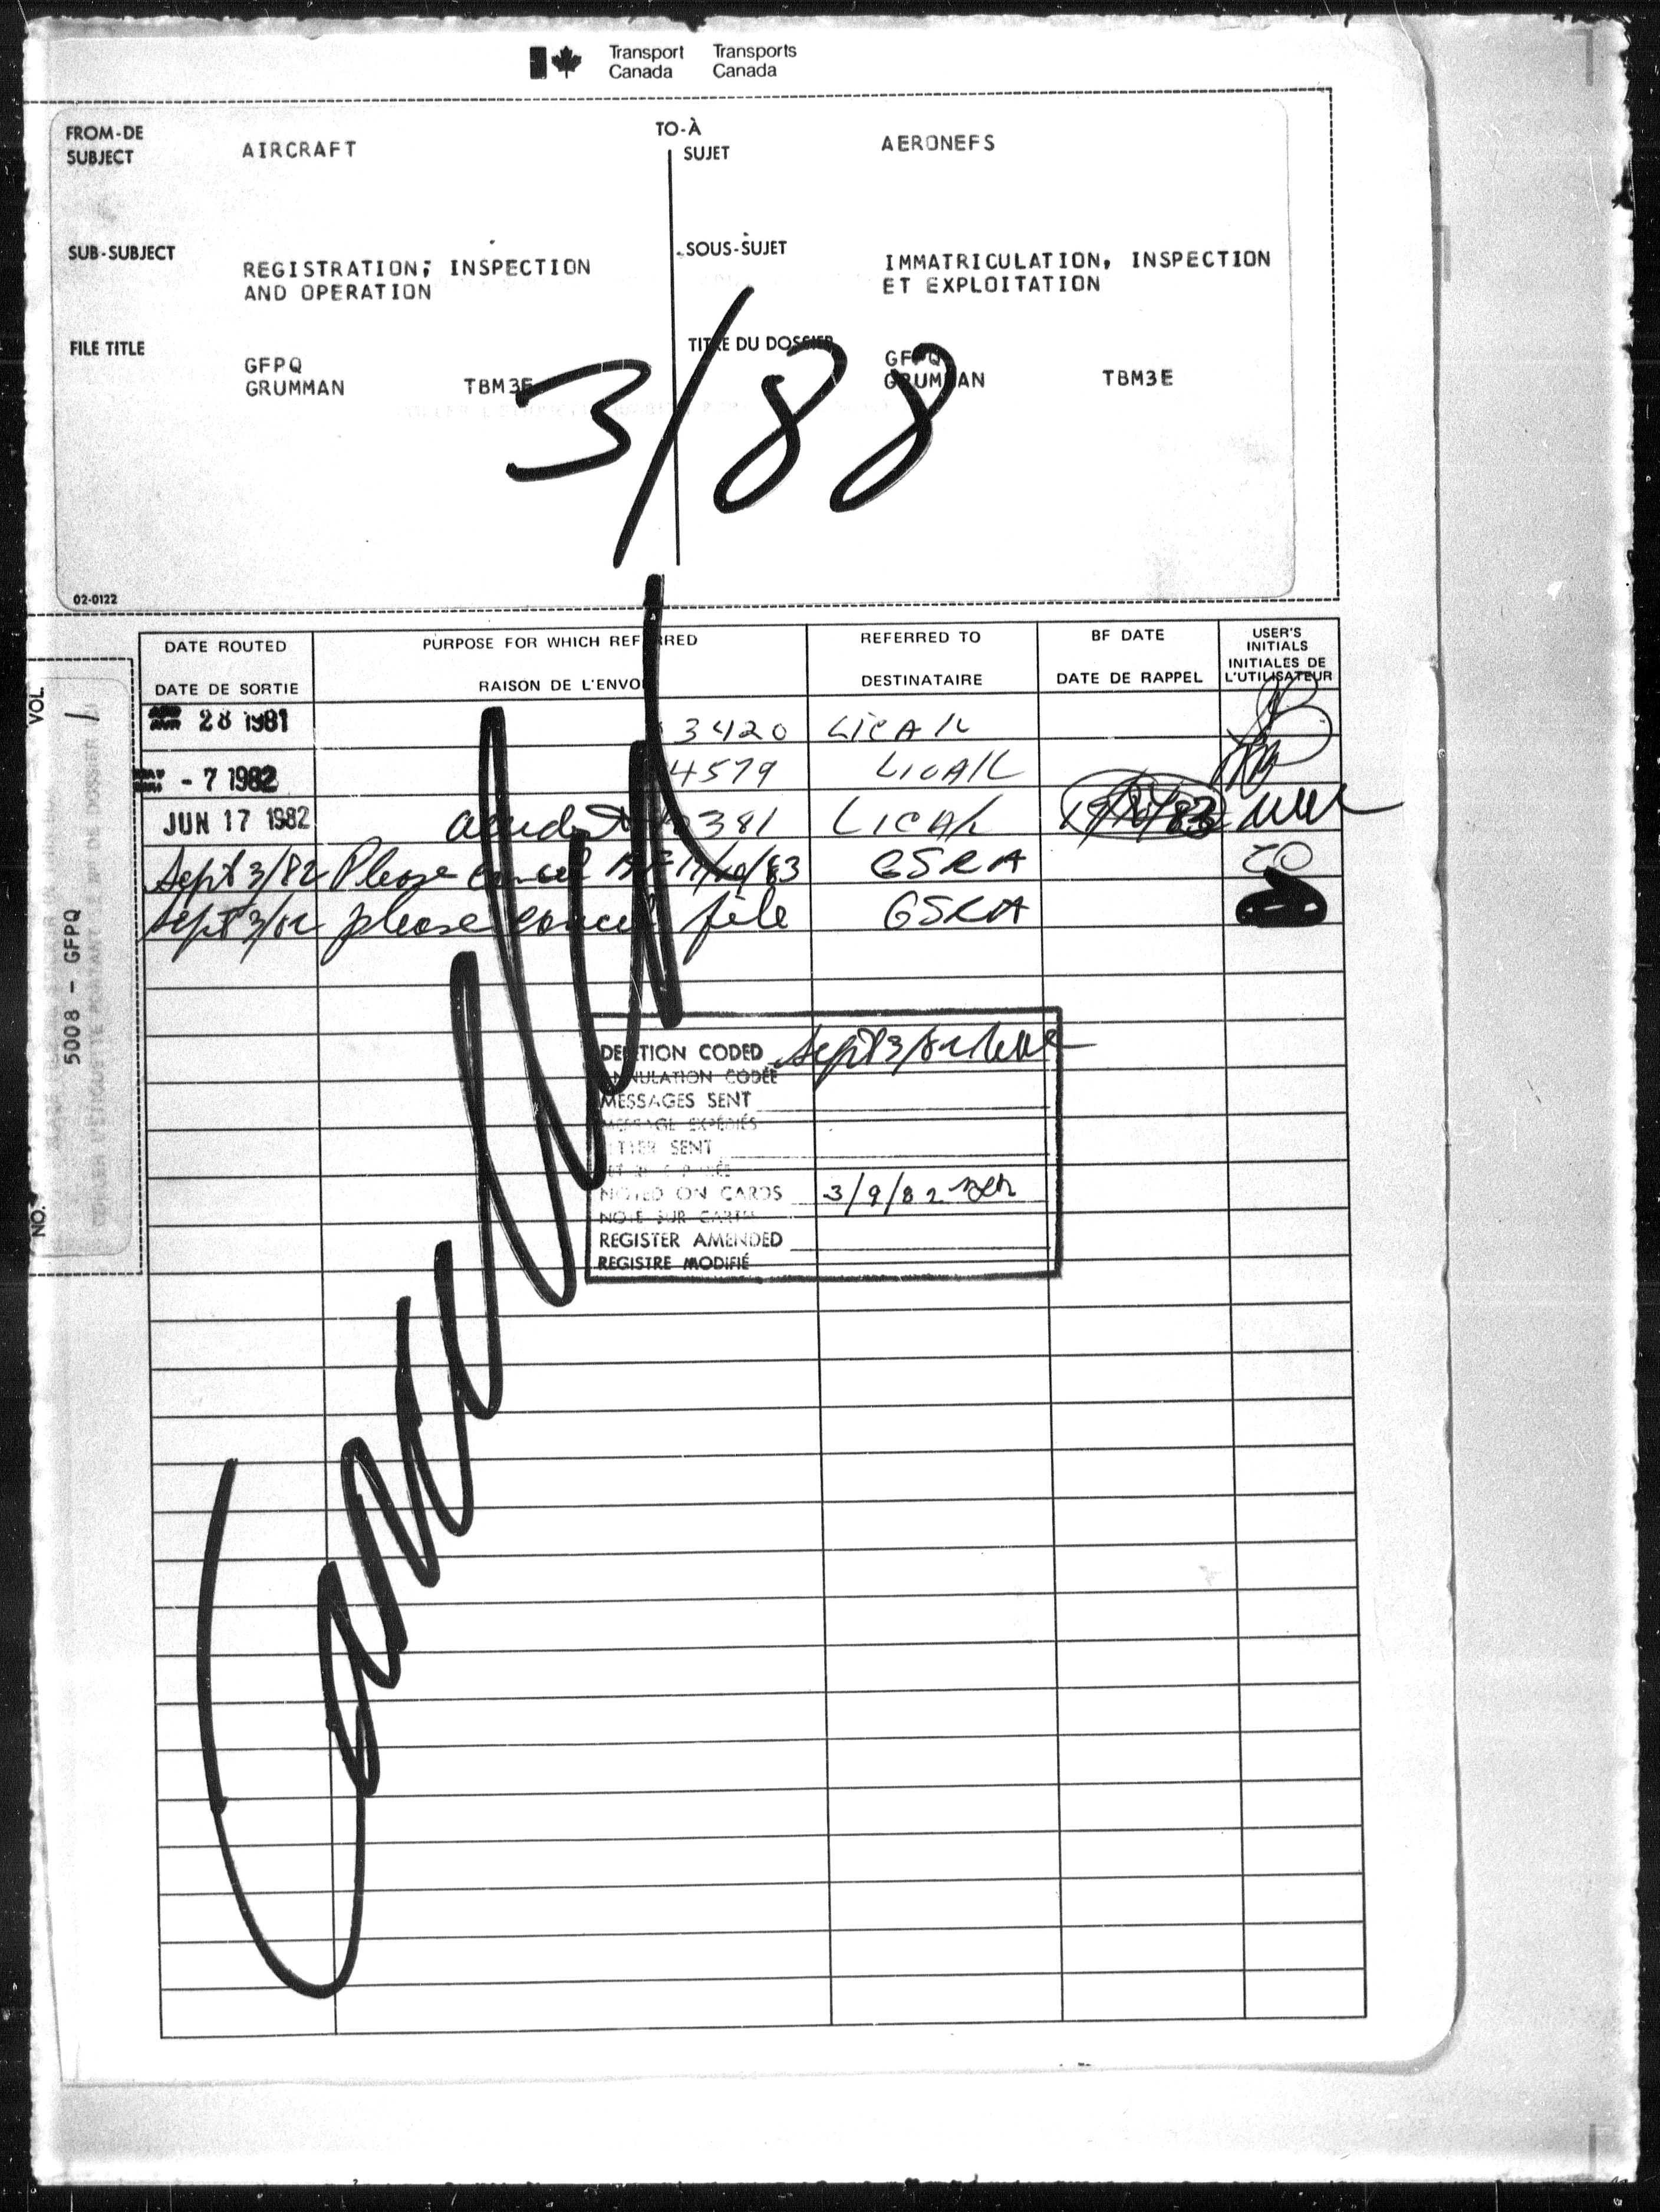 Transport Canada Transports Canada
FROM-DE TO-À
SUBJECT AIRCRAFT SUJET AERONEFS
SUB-SUBJECT REGISTRATION, INSPECTION AND OPERATION
SOUS-SUJET IMMATRICULATION, INSPECTION ET EXPLOITATION
FILE TITLE GFPQ
GRUMMAN TBM3E
TITRE DU DOSSIER GFPQ
GRUMMAN TBM3E
3/88
02-0122
DATE ROUTED PURPOSE FOR WHICH REFERRED REFERRED TO BF DATE USER'S INITIALS
DATE DE SORTIE RAISON DE L'ENVOI DESTINATAIRE DATE DE RAPPEL INITIALES DE L'UTILISATEUR
28 1981 3420
- 7 1982 4579
JUN 17 1982 381
Sept 3/82 Please cancel BF 19/10/83 GSRA
Sept 3/82 please cancel file GSRA
Cancelled
DELETION CODED Sept 3/82
ANNULATION CODÉE
MESSAGES SENT
MESSAGE EXPÉDIÉS
LETTER SENT
NOTED ON CARDS 3/9/82
NOTE SUR CARTE
REGISTER AMENDED
REGISTRE MODIFIÉ
VOL. 1
5008 - GFPQ
NO.